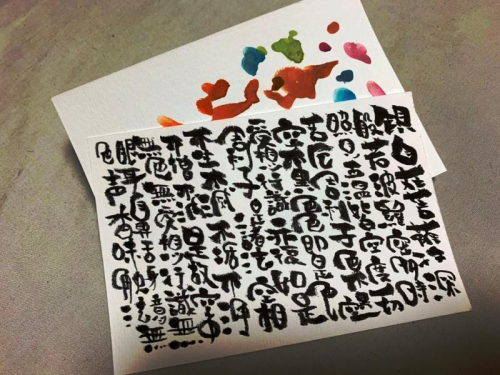 観自在菩薩行深
般若波羅蜜多時
照見五蘊皆空度一切
苦厄舎利子色不異空
空不異色即是
受想行識亦復如是
舎利子是諸法空相
不生不滅不垢不浄
不増不減是故空中
無色無受想行識無
眼耳鼻舌身意無
色声香味触